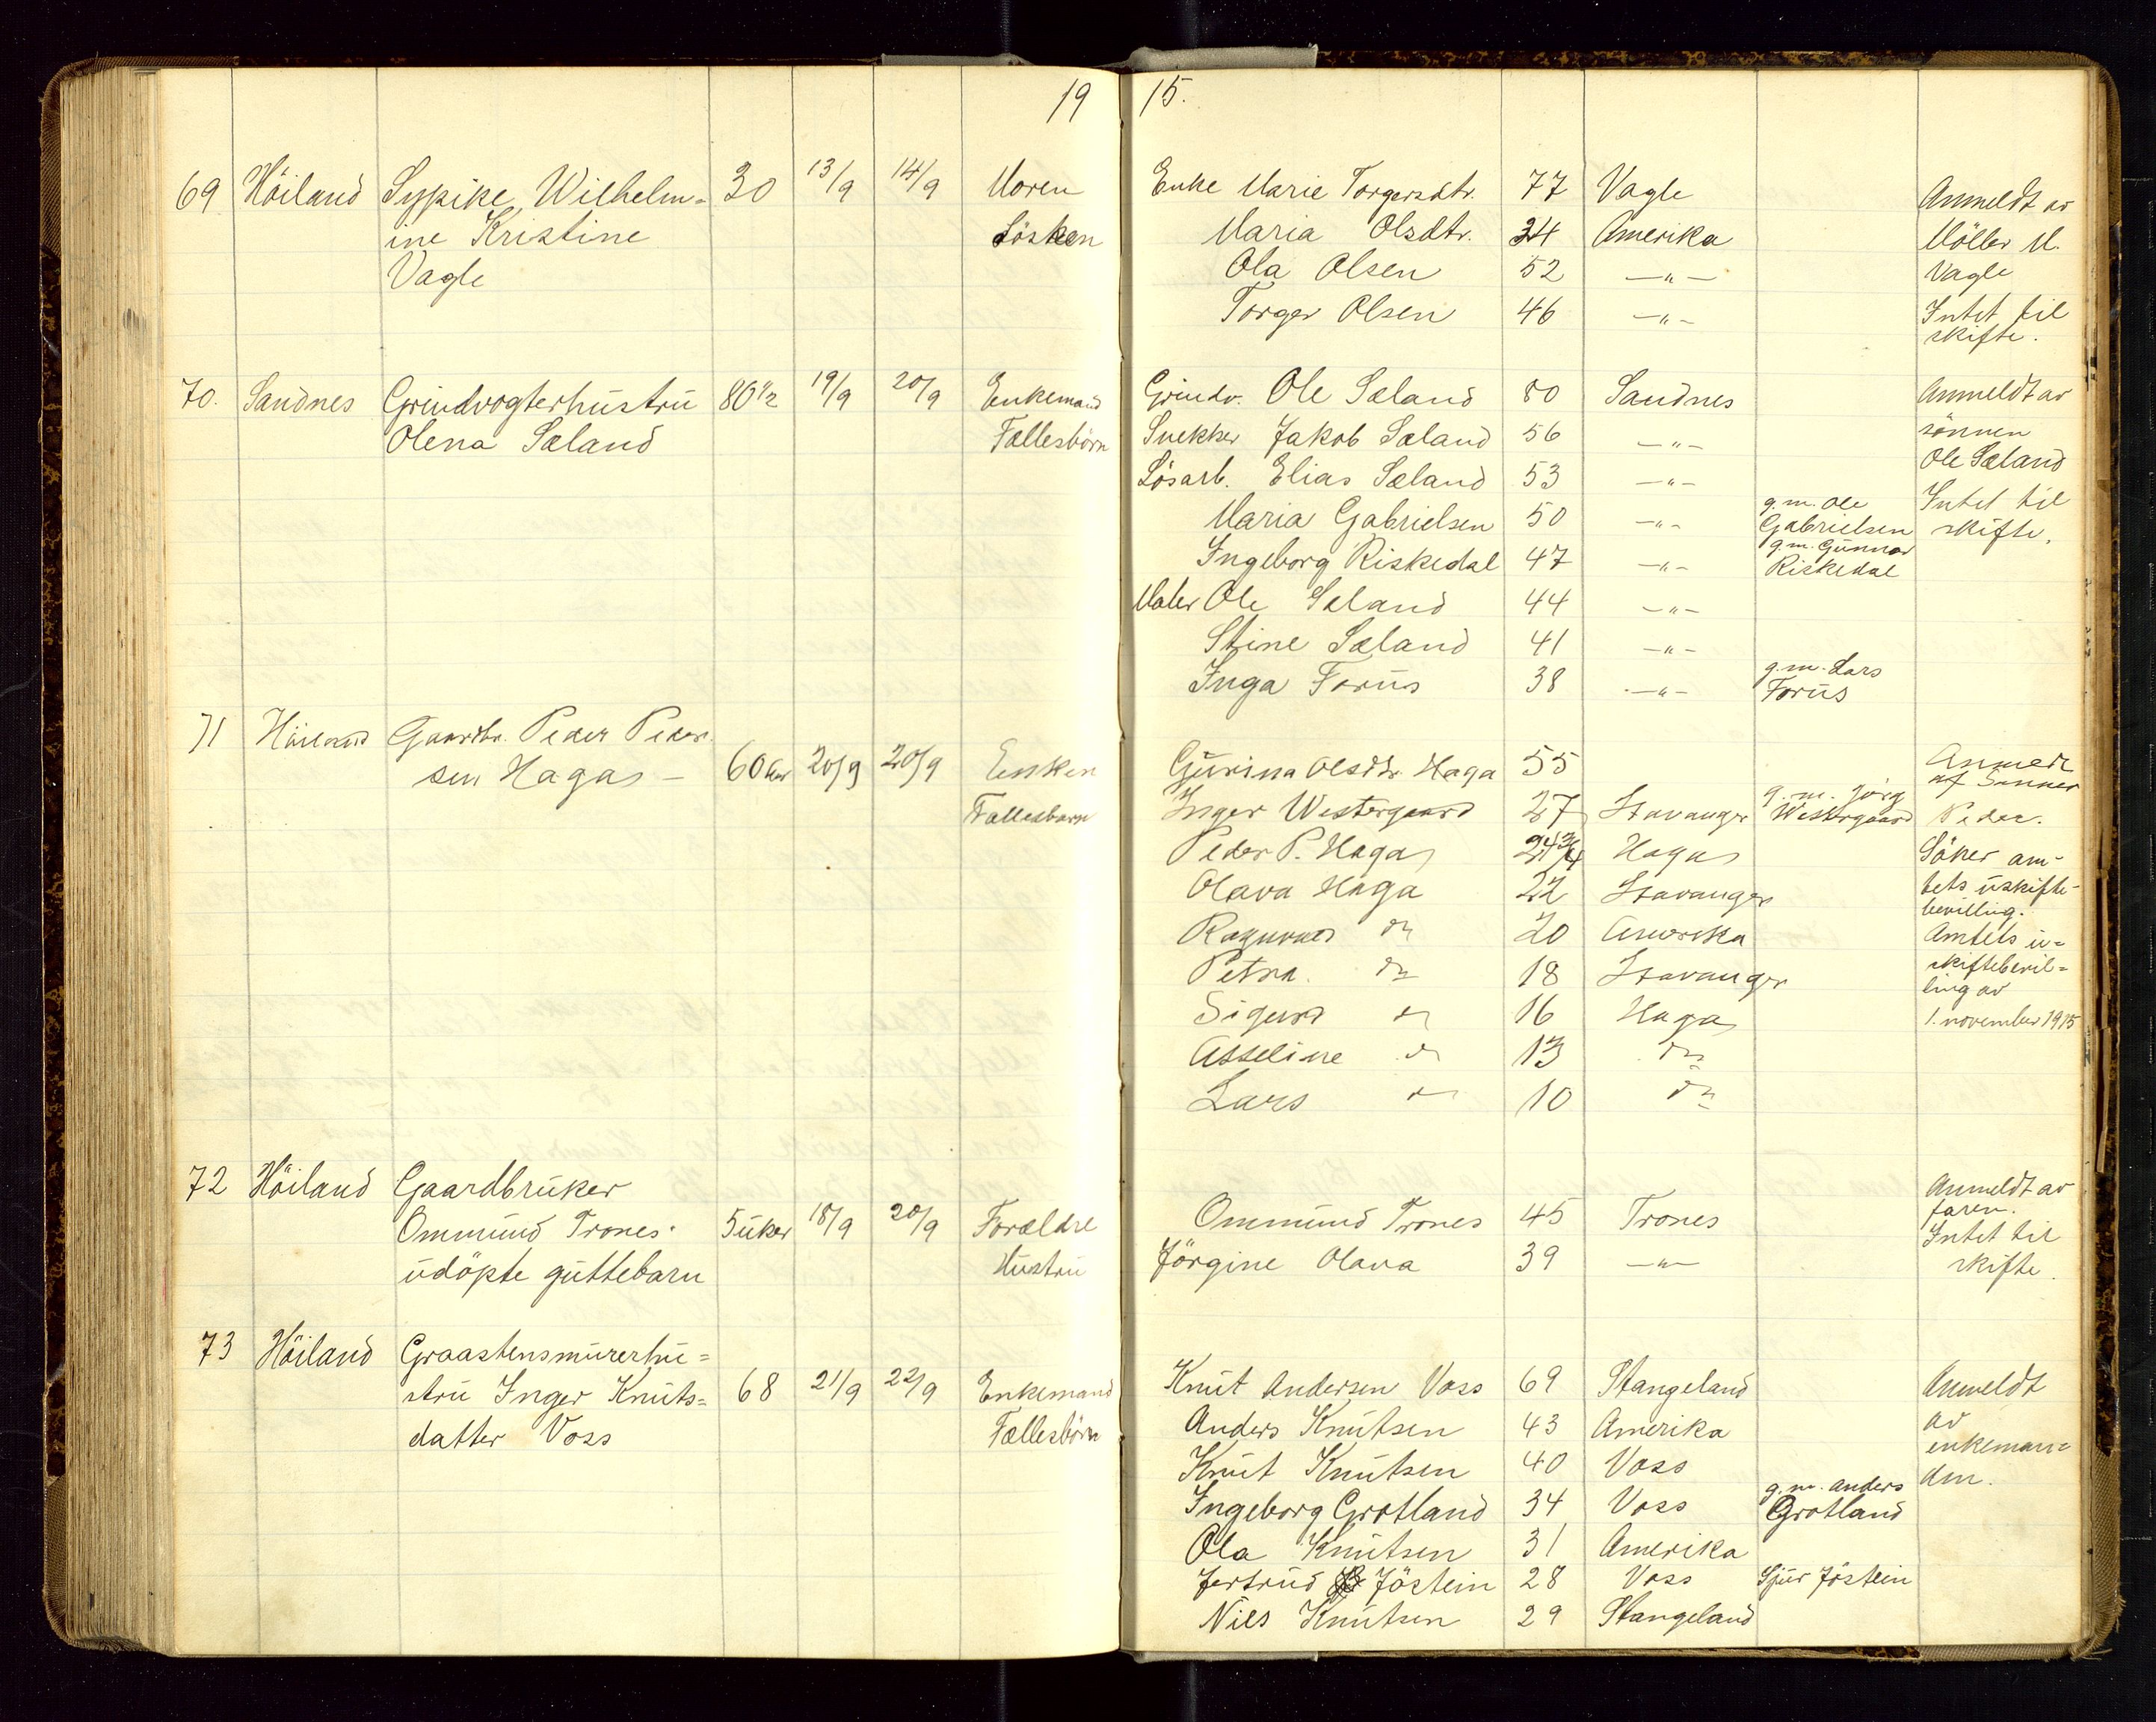 19 15.
69 Höiland Sypike Wilhelm= 30 13/9 14/9 Moren Enke Marie Torgersdtr. 77 Vagle Anmeldt av
ine Kristine Lösken Maria Olsdtr. 34 Amerika Möller M.
Vagle Ola Olsen 52 —"— Vagle
Torger Olsen 46 —"— Intet til
skifte.
70. Sandnes Grindvogterhustru 80½ 19/9 20/9 Enkemand Grindv. Ole Sæland 80 Sandnes Anmeldt av
Olena Sæland Fællesbörn Snekker Jakob Sæland 56 —"— sönnen
Lösarb. Elias Sæland 53 —"— Ole Sæland
Maria Gabrielsen 50 —"— g.m. Ole Gabrielsen Intet til
Ingeborg Riskedal 47 —"— g.m. Gunnar Riskedal skifte.
Maler Ole Sæland 44 —"—
Stine Sæland 41 —"—
Inga Forus 38 —"— g.m. Lars Forus
71 Höiland Gaardbr. Peder Peder-
sen Haga — 60 aar 20/9 20/9 Enken Gurina Olsdtr. Haga 55 Anmeldt
af Sönnen
Fællesbarn Inger Westergaard 27 Stavanger g.m. Jörg Westergaard Peder.
Peder P. Haga 24 3/4 Haga Söker am-
Olava Haga 22 Stavanger tets uskifte-
bevilling.
Ragnvald do 20 Amerika Amtets u=
Petra. do 18 Stavanger skiftebevil=
ling av
Sigurd do 16 Haga 1. november 1915
Asseline do 13 do
Lars do 10 do
72 Höiland Gaardbruker Anmeldt av
Ommund Trones' 5 uker 18/9 20/9 Forældre Ommund Trones 45 Trones faren.
udöpte guttebarn Hustru Jörgine Olava 39 —"— Intet til
skifte.
73 Höiland Graastensmurerhu=
stru Inger Knuts= 68 21/9 22/9 Enkemand Knut Andersen Voss 69 Stangeland Anmeldt
datter Voss Fællesbörn Anders Knutsen 43 Amerika av
Knut Knutsen 40 Voss enkeman=
Ingeborg Grotland 34 Voss g.m. Anders Grotland den.
Ola Knutsen 31 Amerika
Jertrud Jöstein 28 Voss Sjur Jöstein
Nils Knutsen 29 Stangeland